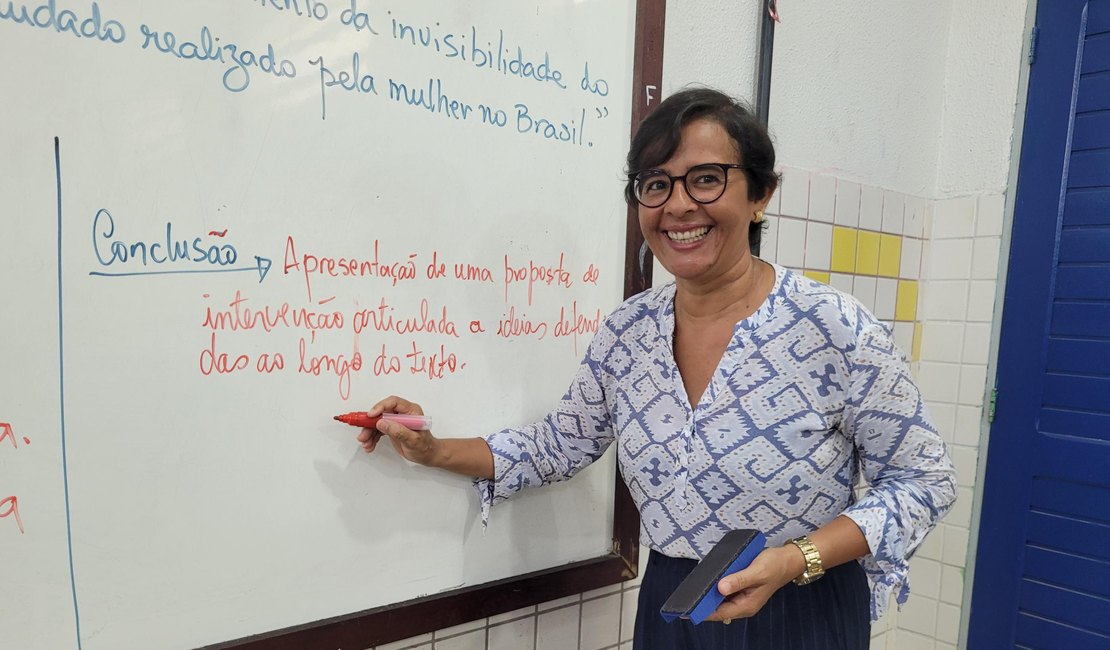 ento da invisibilidade do
realizado pela mulher no Brasil."
Conclusão → Apresentação de uma proposta de
intervenção articulada a ideias defendi
das ao longo do texto.
F
a.
a